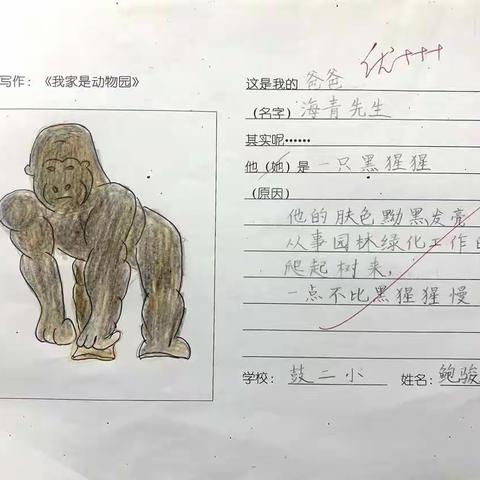 写作：《我家是动物园》
优+++
这是我的 爸爸
（名字）海青先生
其实呢……
他（她）是 一只黑猩猩
（原因）
他的肤色黝黑发亮
从事园林绿化工作的
爬起树来，
一点不比黑猩猩慢
学校： 鼓二小 姓名： 鲍骏